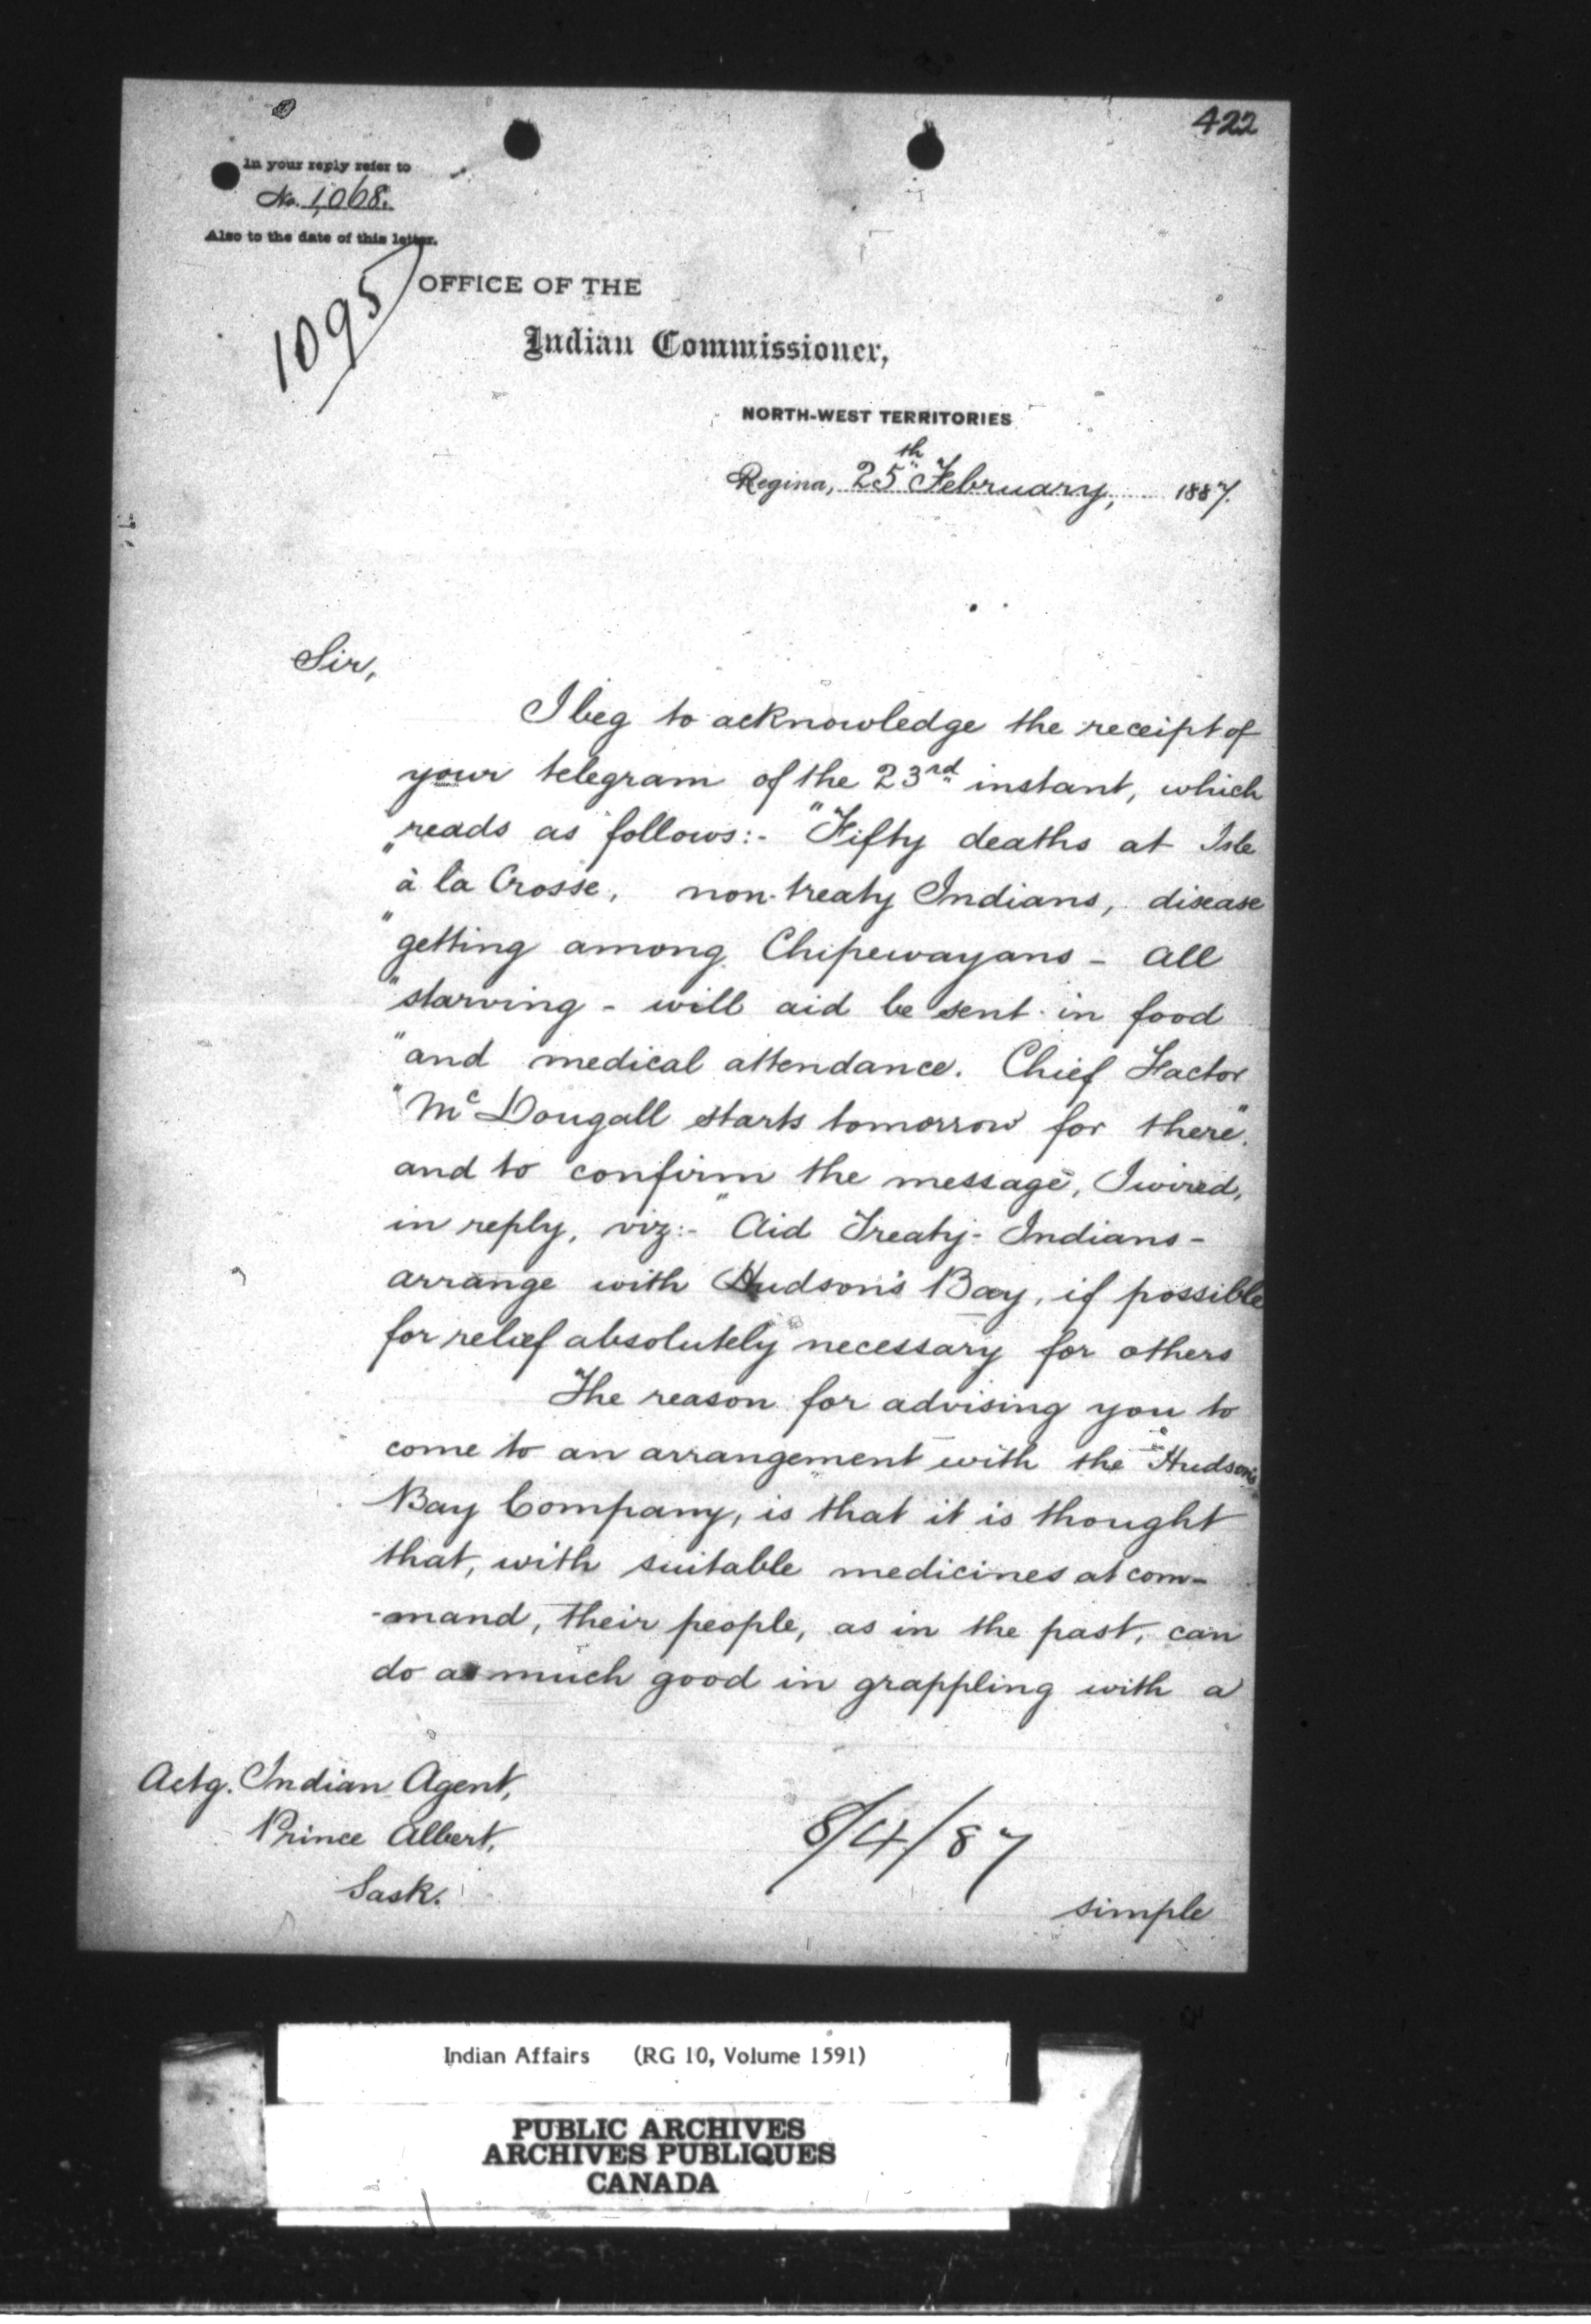 422
In your reply refer to
No. 1,068.
Also to the date of this letter.
1095
OFFICE OF THE
Indian Commissioner,
NORTH-WEST TERRITORIES
Regina, 25th February, 1887.
Sir,
I beg to acknowledge the receipt of
your telegram of the 23rd instant, which
reads as follows:- "Fifty deaths at Isle
"à la Crosse, non-treaty Indians, disease
"getting among Chipewayans - all
"starving - will aid be sent in food
"and medical attendance. Chief Factor
"McDougall starts tomorrow for there".
and to confirm the message, I wired,
in reply, viz:- "Aid Treaty-Indians-
arrange with Hudson's Bay, if possible
for relief absolutely necessary for others
The reason for advising you to
come to an arrangement with the Hudson's
Bay Company, is that it is thought
that, with suitable medicines at com-
-mand, their people, as in the past, can
do as much good in grappling with a
Actg. Indian Agent,
Prince Albert,
Sask.
8/4/87
simple
Indian Affairs (RG 10, Volume 1591)
PUBLIC ARCHIVES
ARCHIVES PUBLIQUES
CANADA